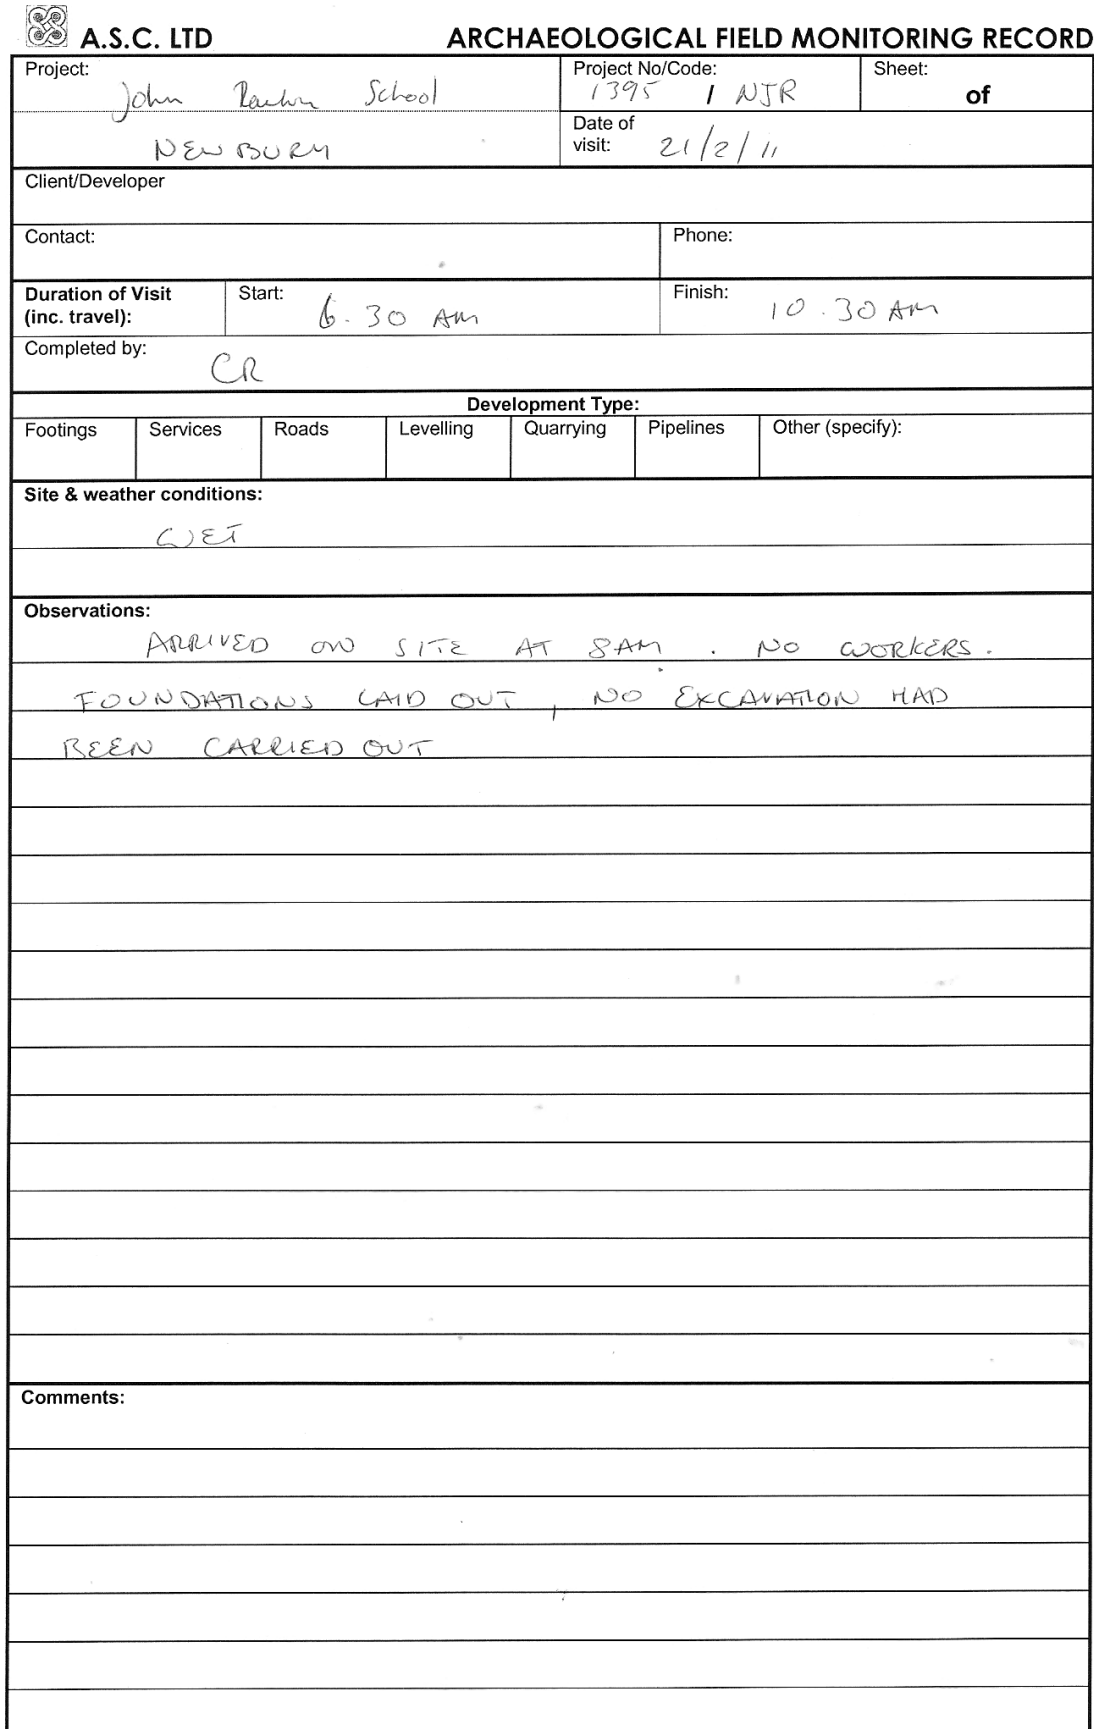 A.S.C. LTD ARCHAEOLOGICAL FIELD MONITORING RECORD
Project: John Rankin School
NEWBURY
Project No/Code: 1395 / NJR
Sheet: of
Date of visit: 21/2/11
Client/Developer
Contact:
Phone:
Duration of Visit (inc. travel):
Start: 6.30 AM
Finish: 10.30 AM
Completed by: CR
Development Type:
Footings Services Roads Levelling Quarrying Pipelines Other (specify):
Site & weather conditions:
WET
Observations:
ARRIVED ON SITE AT 8AM. NO WORKERS.
FOUNDATIONS LAID OUT, NO EXCAVATION HAD
BEEN CARRIED OUT
Comments: